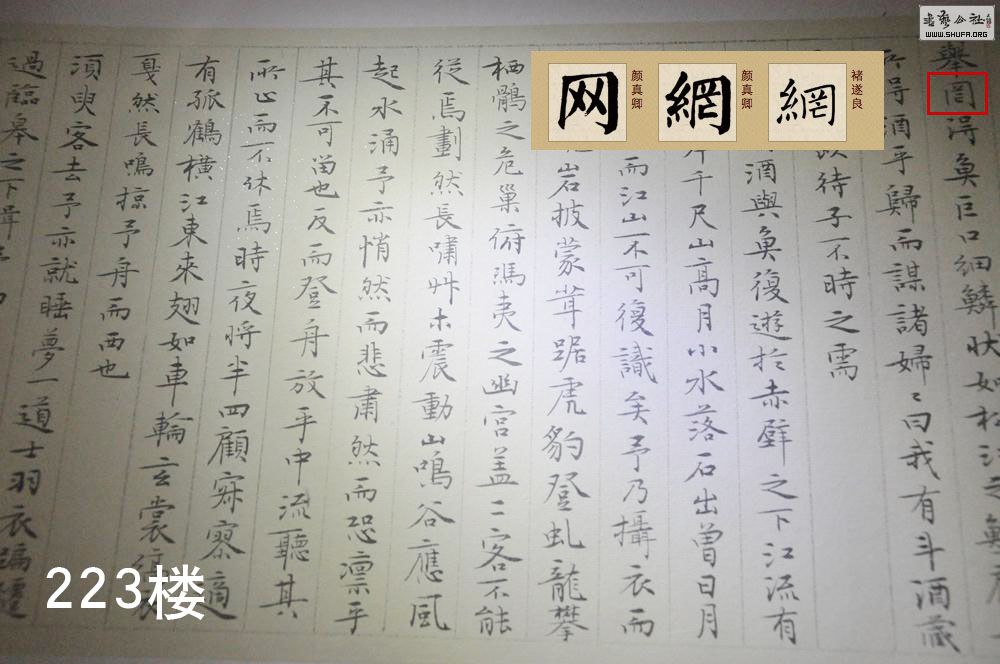 書藝公社
WWW.SHUFA.ORG
网 顔真卿
網 顔真卿
網 褚遂良
舉罔得魚巨口細鱗狀如松江之
得酒乎歸而謀諸婦〻曰我有斗酒藏
待子不時之需
酒與魚復遊於赤壁之下江流有
千尺山高月小水落石出曾日月
而江山不可復識矣予乃攝衣而
岩披蒙茸踞虎豹登虬龍攀
栖鶻之危巢俯馮夷之幽宮盖二客不能
從焉劃然長嘯艸木震動山鳴谷應風
起水涌予亦悄然而悲肅然而恐凛乎
其不可留也反而登舟放乎中流聽其
所止而不休焉時夜将半四顧寂寥適
有孤鶴横江東來翅如車輪玄裳
戛然長鳴掠予舟而西也
須臾客去予亦就睡夢一道士羽衣蹁躚
過臨皋之下揖予
223楼